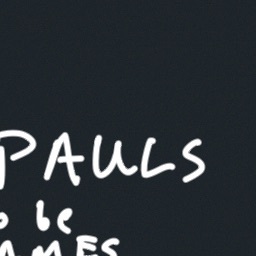 PAULS
be
AMES